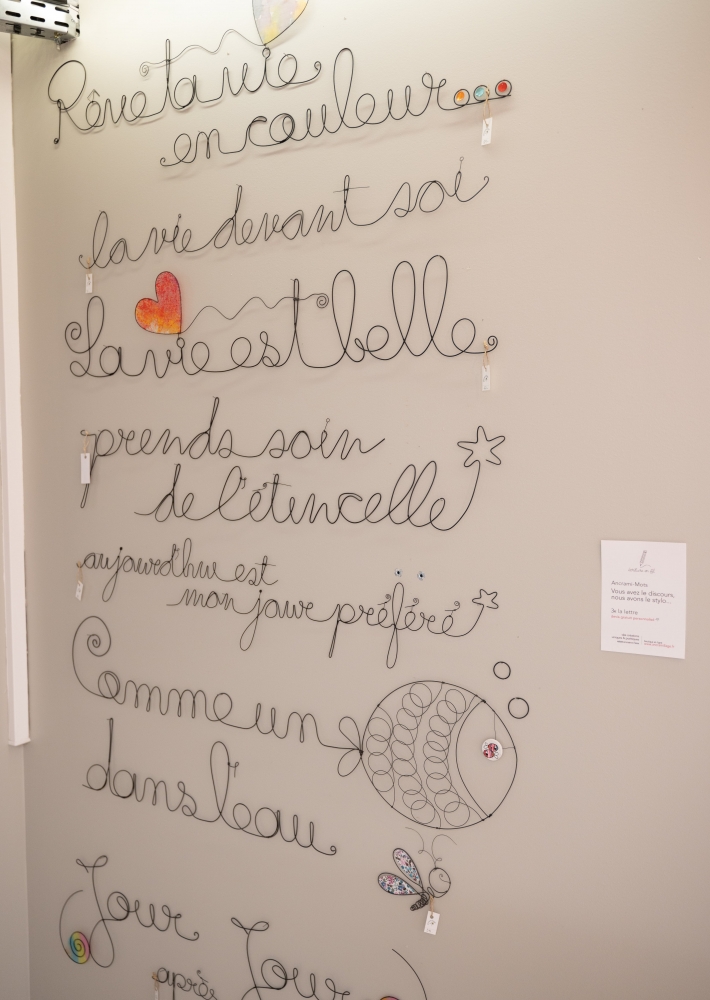 Rêve ta vie
en couleur...
la vie devant soi
La vie est belle
prends soin
de l'étincelle
aujourd'hui est
mon jour préféré
Comme un
dans l'eau
Jour
après
Jour
Ancrami-Mots
Vous avez le discours,
nous avons le stylo...
3€ la lettre